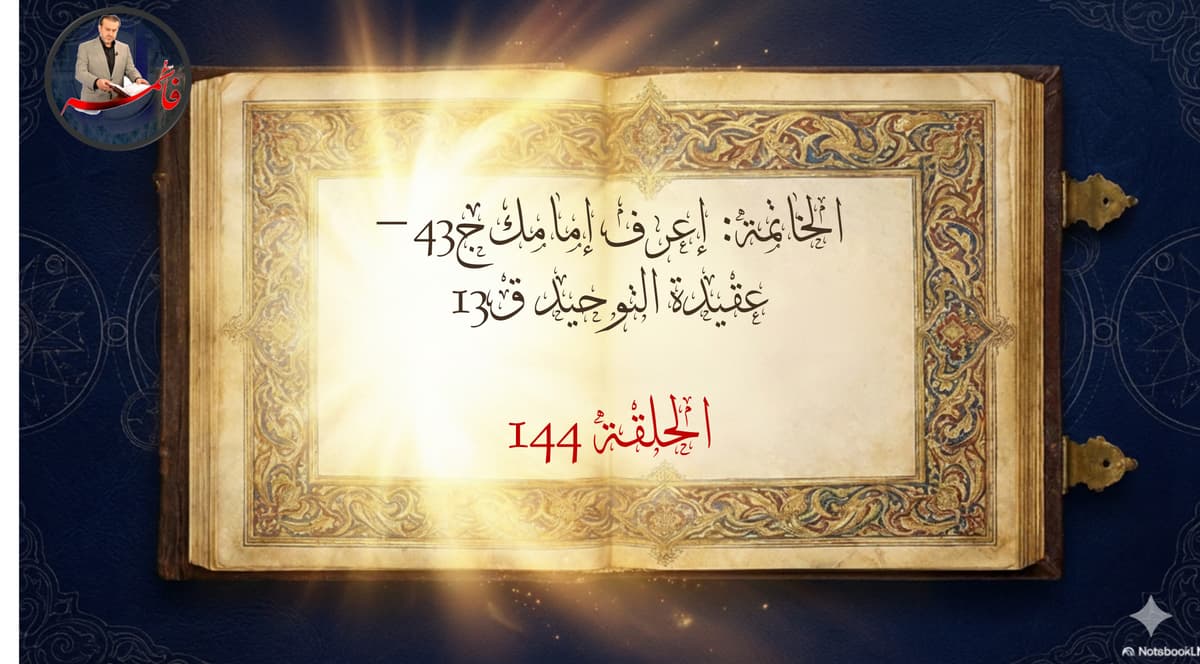 فاطمة
الخاتمة: إعرف إمامك ج43 –
عقيدة التوحيد ق13
الحلقة 144
NotebookLM